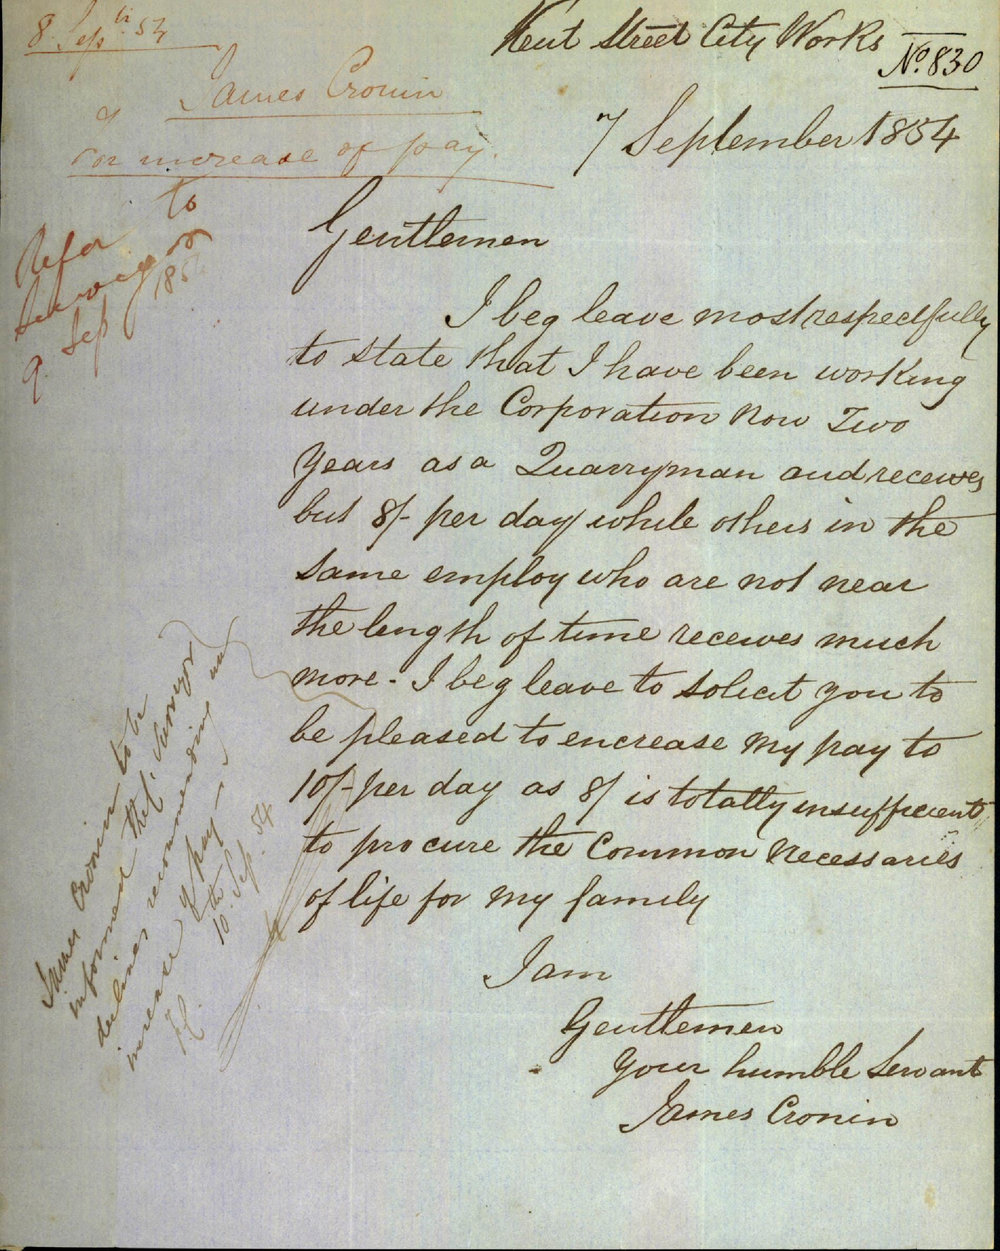 8 Septr. 54
Kent Street City Works
No. 830
James Cronin
for increase of pay.
7 September 1854
Refer to
Surveyor
9. Sep 185
Gentlemen
I beg leave most respectfully
to state that I have been working
under the Corporation now Two
Years as a Quarryman and receives
but 8/- per day while others in the
same employ who are not near
the length of time receives much
more - I beg leave to solicit you to
be pleased to encrease my pay to
10/- per day as 8/ is totally insufficient
to procure the Common necessaries
of life for my family
I am
Gentlemen
Your humble Servant
James Cronin
James Cronin to be
informed the C. Surveyor
declines recommending an
increase of pay
10th Sep. 54